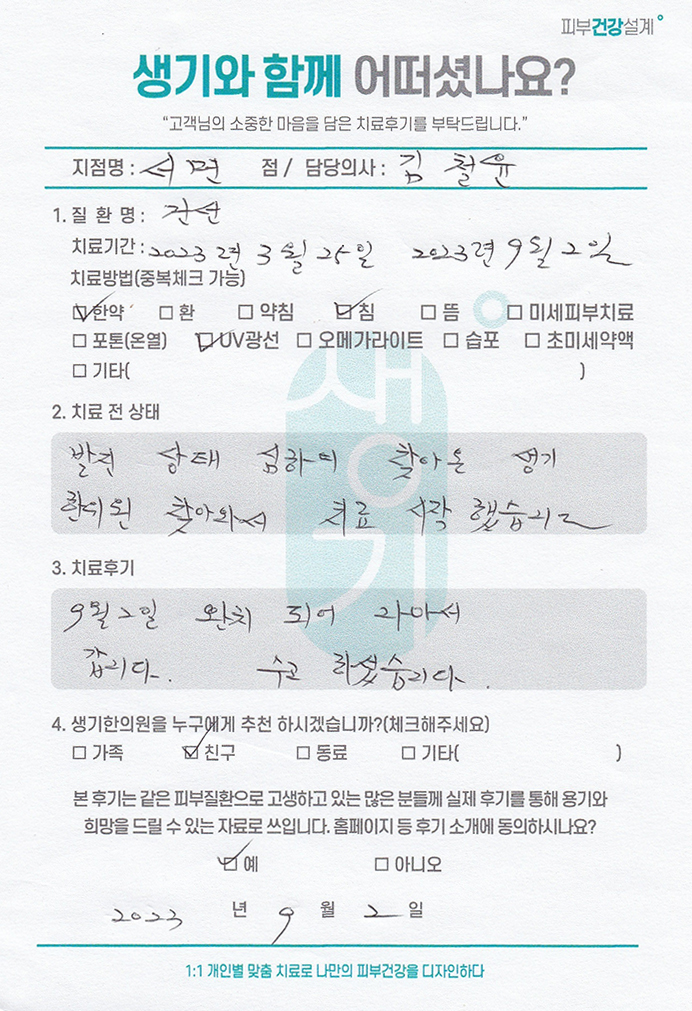 피부건강설계
생기와 함께 어떠셨나요?
“고객님의 소중한 마음을 담은 치료후기를 부탁드립니다.”
지점명 : 서면 점 / 담당의사 : 김철윤
1. 질 환 명 : 건선
치료기간 : 2023년 3월 25일 2023년 9월 2일
치료방법(중복체크 가능)
☑ 한약 □ 환 □ 약침 ☑ 침 □ 뜸 □ 미세피부치료
□ 포톤(온열) ☑ UV광선 □ 오메가라이트 □ 습포 □ 초미세약액
□ 기타( )
2. 치료 전 상태
발견 상태 심하여 찾아온 생기
한의원 찾아와서 치료 시작 했습니다
3. 치료후기
9월 2일 완치 되어
갑니다. 수고 하셨습니다.
4. 생기한의원을 누구에게 추천 하시겠습니까?(체크해주세요)
□ 가족 ☑ 친구 □ 동료 □ 기타( )
본 후기는 같은 피부질환으로 고생하고 있는 많은 분들께 실제 후기를 통해 용기와
희망을 드릴 수 있는 자료로 쓰입니다. 홈페이지 등 후기 소개에 동의하시나요?
☑ 예 □ 아니오
2023 년 9 월 2 일
1:1 개인별 맞춤 치료로 나만의 피부건강을 디자인하다
생기